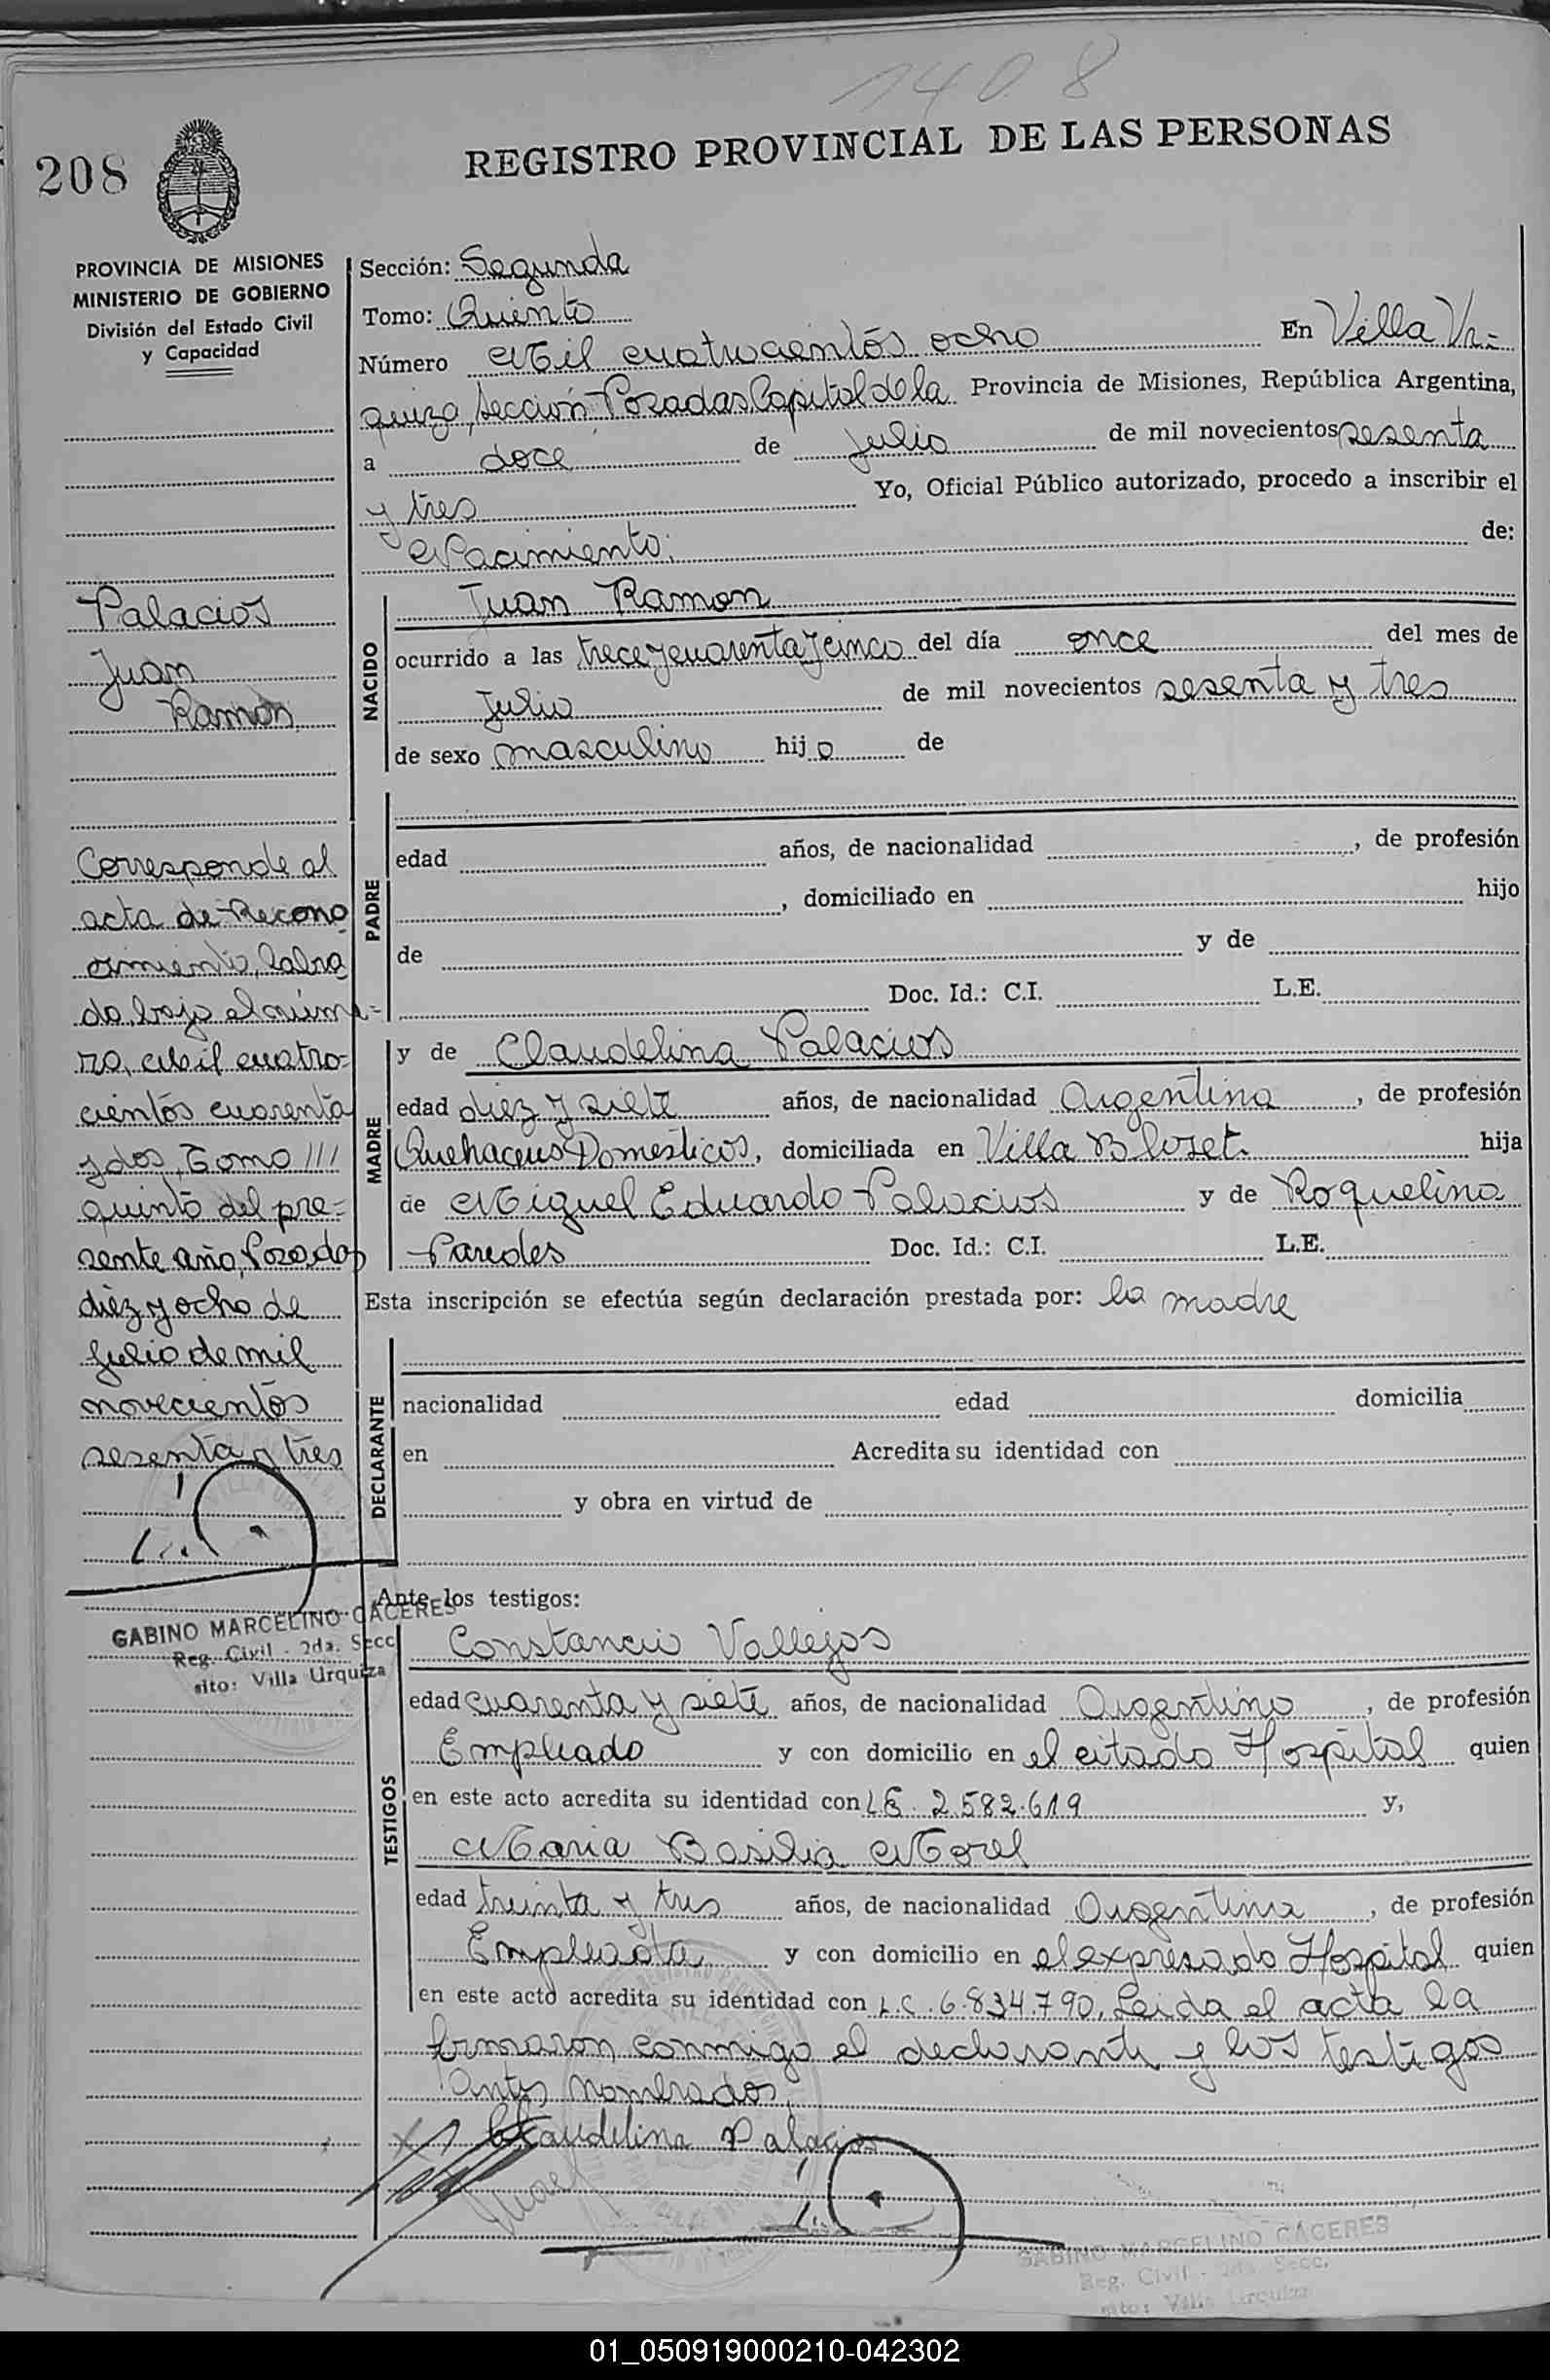 1408
208
REGISTRO PROVINCIAL DE LAS PERSONAS
PROVINCIA DE MISIONES
MINISTERIO DE GOBIERNO
División del Estado Civil
y Capacidad
Palacios
Juan
Ramon
Corresponde al
acta de Recono
cimiento, labra
da bajo el núme-
ro, Mil cuatro-
cientos cuarenta
y dos, Tomo ///
quinto del pre-
sente año, Posadas
diez y ocho de
julio de mil
novecientos
sesenta y tres
GABINO MARCELINO CACERES
Reg. Civil - 2da. Secc
sito: Villa Urquiza
Sección: Segunda
Tomo: Quinto
Número Mil cuatrocientos ocho En Villa Ur-
quiza, sección Posadas, Capital de la Provincia de Misiones, República Argentina,
a doce de julio de mil novecientos sesenta
y tres Yo, Oficial Público autorizado, procedo a inscribir el
Nacimiento: de:
NACIDO
Juan Ramon
ocurrido a las trece y cuarenta y cinco del día once del mes de
Julio de mil novecientos sesenta y tres
de sexo masculino hijo de
PADRE
edad años, de nacionalidad , de profesión
, domiciliado en hijo
de y de
Doc. Id.: C.I. L.E.
MADRE
y de Claudelina Palacios
edad diez y siete años, de nacionalidad Argentina, de profesión
Quehaceres Domesticos, domiciliada en Villa Bloset. hija
de Miguel Eduardo Palacios y de Roquelina
Paredes Doc. Id.: C.I. L.E.
Esta inscripción se efectúa según declaración prestada por: la madre
DECLARANTE
nacionalidad edad domicilia
en Acredita su identidad con
y obra en virtud de
Ante los testigos:
TESTIGOS
Constancio Vallejos
edad cuarenta y siete años, de nacionalidad Argentino, de profesión
Empleado y con domicilio en el citado Hospital quien
en este acto acredita su identidad con L.E. 2.582.619 y,
Maria Basilia Morel
edad treinta y tres años, de nacionalidad Argentina, de profesión
Empleada y con domicilio en el expresado Hospital quien
en este acto acredita su identidad con L.C. 6.834.790. Leida el acta la
firmaron conmigo el declarante y los testigos
antes nombrados
Claudelina Palacios
GABINO MARCELINO CACERES
Reg. Civil - 2da. Secc.
sito: Villa Urquiza
01_050919000210-042302